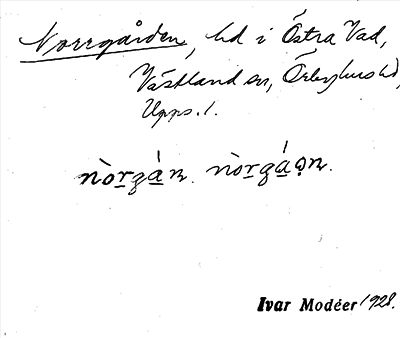 Norrgården, hd i Östra Vad,
Västland sn, Örbyhus hd,
Upps. l.
nòrgán. nòrgáǫn.
Ivar Modéer 1928.